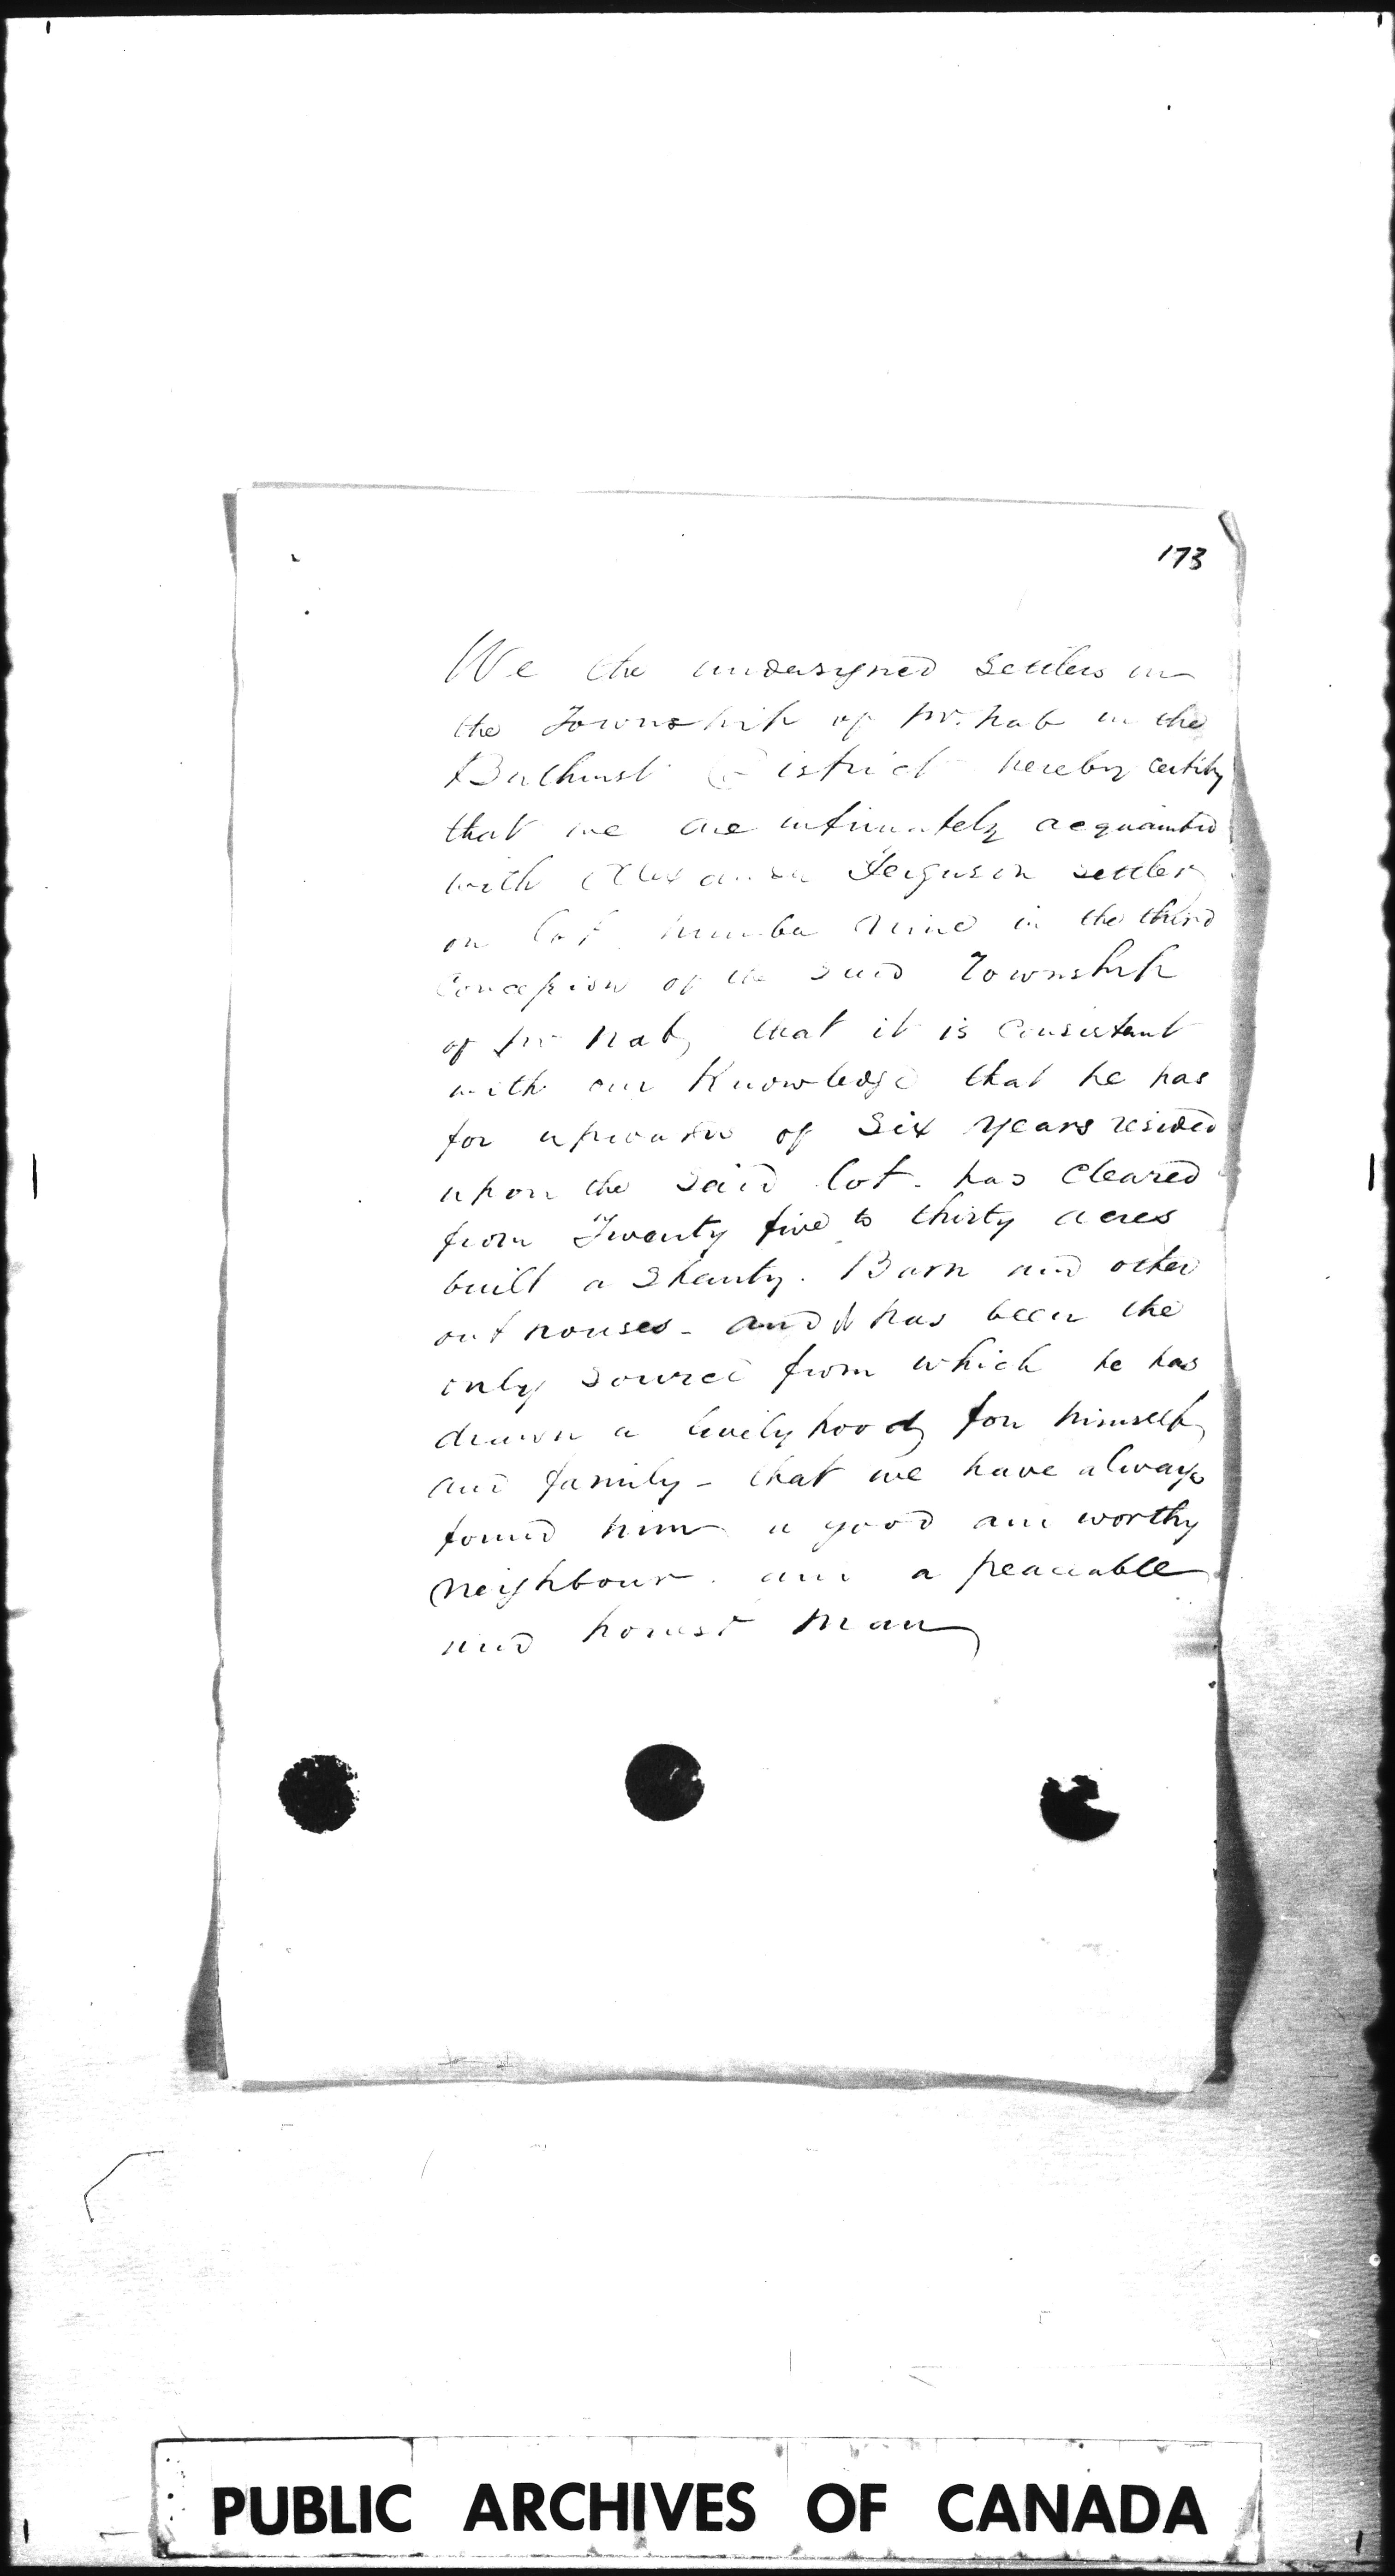 173
We the undersigned Settlers in
the Township of McNab in the
Bathurst District hereby certify
that we are intimately acquainted
with Alexander Ferguson settler
on Lot number Nine in the third
Concession of the said Township
of McNab, that it is Consistant
with our Knowledge that he has
for upwards of Six years resided
upon the said Lot. has Cleared
from Twenty five to thirty acres
built a Shanty. Barn and other
out houses - and has been the
only source from which he has
drawn a livilyhood for himself
and family - that we have always
found him a good and worthy
neighbour. and a peaceable
and honest man
PUBLIC ARCHIVES OF CANADA